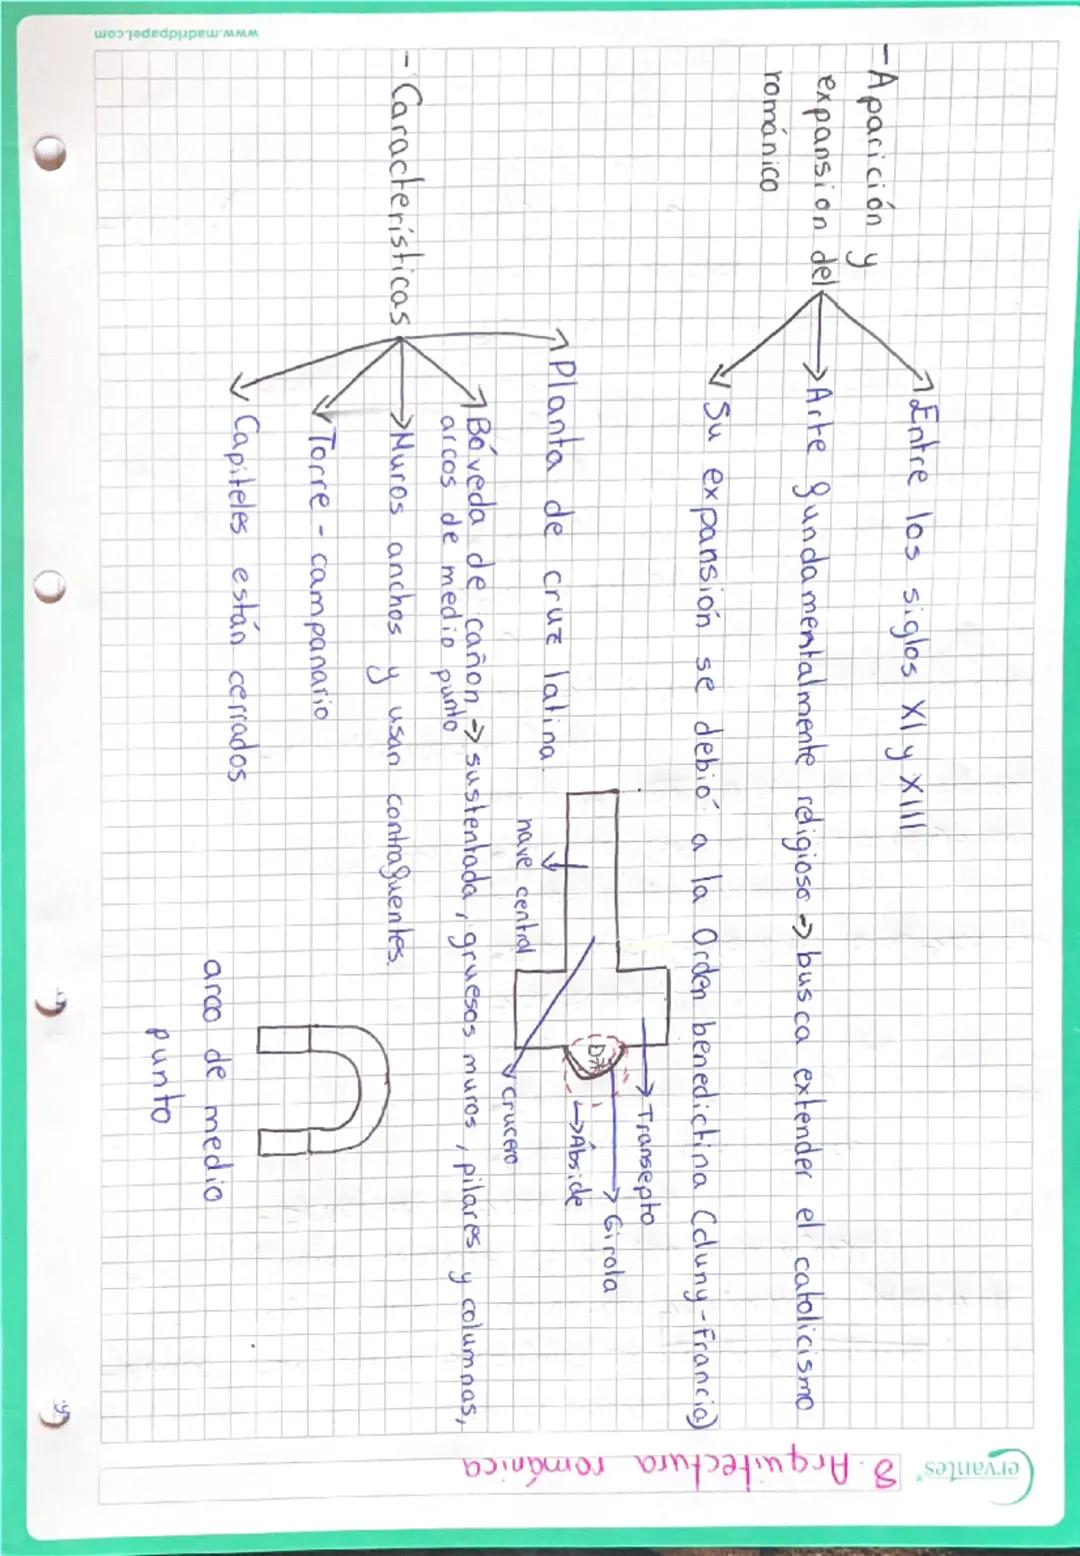 Cervantes®
8. Arquitectura románica
- Aparición y
expansion del
románico
Entre los siglos XI y XIII
Arte fundamentalmente religioso -> busca extender el catolicismo
Su expansión se debió a la Orden benedictina (cluny-Francia)
- Características
Planta de cruz latina.
nave central
Transepto
Girola
Ábside
crucero
Bóveda de cañon -> sustentada, gruesos muros, pilares y columnas,
arcos de medio punto
Muros anchos y usan contrafuentes.
Torre - campanario
Capiteles están cerrados
arco de medio
punto
www.madridpapel.com